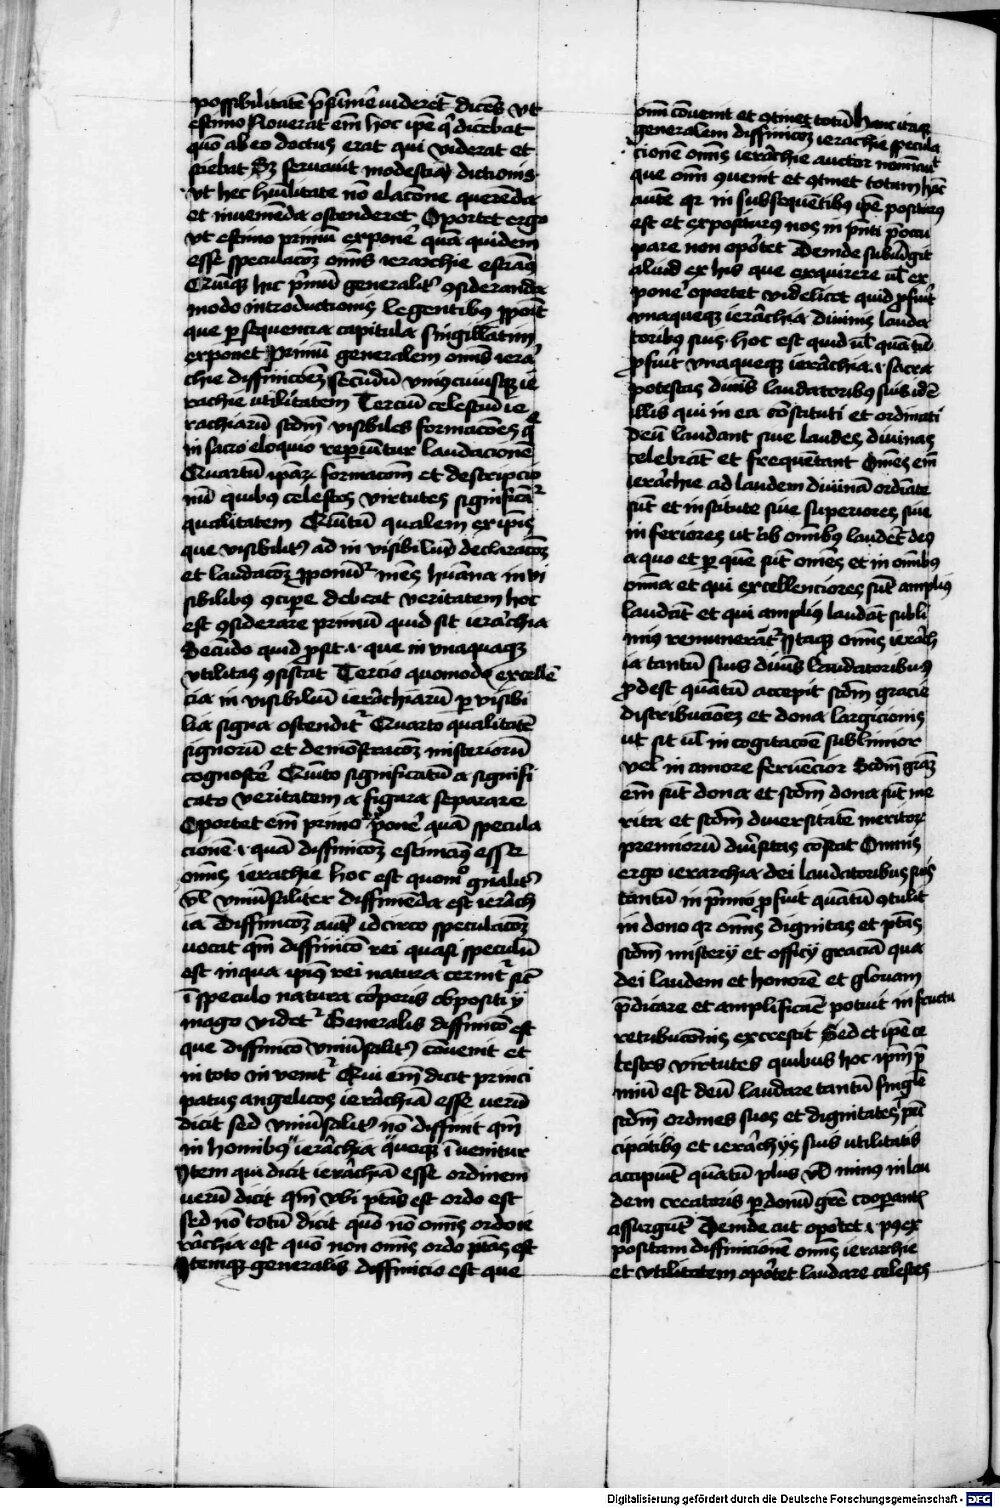 possibilitatē p̄sūme videret᷑ dicēs vt
estimo Noverat em̄ hoc ipē q̄ dicebat
quō ab eo doctus erat qui viderat et
sciebat Sꝫ servavit modestiā dictionis
vt hec hūilitate nō elacōne querēda
et invenienda ostenderet Oportet ergo
vt estimo primū exponē quā quidem
esse speculacōꝫ om̄is ierarchie estīaꝰ
Quīqꝫ hic p̄mū generalitꝰ ꝯsideranda
modo introductionis legentibus ꝓpoīt
que ꝑ sequencia capitula singillatim
exponet Primū generalem om̄is ierā
chie diffinicōeꝫ Secūdū vniꝰcuiusqꝫ ie
rachie utilitatem Terciū celestiū ie
rachiarū scdm̄ visibiles formacōes q̄
in sacro eloquio reperiūtur laudacione
Quartū ipaꝝ formacōm et descripcio
nū quibus celestes virtutes significāt᷑
qualitatem Quītū qualem ex ipīs
que visibilitꝰ ad in visibiliū declaracōꝫ
et laudacōꝫ ꝓponūt᷑ mēs hūana in vi
sibilibꝰ ꝯcipe debeat veritatem hoc
est ꝯsiderare primū quid sit ierachia
Secūdo quid ꝓsit .i. que in vnaquaqꝫ
vtilitas ꝯsistat Tercio quomodo excellē
cia in visibiliū ierāchiarū ꝑ visibi
lia signa ostendit᷑ Quarto qualitatē
signorū et demōstracōꝫ misteriorū
cognoscē Quīto significatū a signifi
cato veritatem a figura separare
Oportet em̄ primo ꝓponē quā specula
cionē .i. quā diffinicōꝫ estimāꝰ esse
om̄is ierachie hoc est quomō gn̄alitꝰ
vl̄ vniūsaliter diffiniēda est ierāch
ia Diffinicōꝫ autē idcirco speculacōꝫ
vocat qm̄ diffinicō rei quasi speculū
est in qua ipiꝰ rei natura cernit᷑ sic̄
ī speculo natura cōrporis obpositi y
mago videt᷑ Generalis diffinicō est
que diffinicō vniūsalitꝰ cōvenit et
in toto in venit᷑ Qui em̄ dicit princi
patus angelicos ierāchiā esse verū
dicit sed vniūsalitꝰ nō diffinit qm̄
in hoīnibus ierāchia quoqꝫ īvenitur
Item qui dicit ierāchiā esse ordinem
verū dicit qm̄ vbi p̄tās est ordo est
sed nō totū dicit quō nō om̄is ordo ie
rāchia est quō non om̄is ordo p̄tās est
Itemqꝫ generalis diffinicio est que
om̄i cōvenit et ꝯtinet totū hanc itaqꝫ
generalem diffinicōꝫ ierachie specula
cionē om̄is ierāchie auctor nominavit
que om̄i ꝯuenit et ꝯtinet totam hāc
autē qr in subsequētibꝰ ipē positurꝰ
est et expositurus nos in p̄nti p̄occu
pare non opōrtet Deinde subiūgit
aliud ex his que exquirere vl̄ ex
ponē oportet videlicet quid ꝓfuīt
vnaqueqꝫ ierāchia divinis lauda
toribus suis. hoc est quid vl̄ quātū
ꝓfuīt vnaqueqꝫ ierāchia .i. sacra
potestas divīs laudatoribꝰ suis idē
illis qui in ea cōstituti et ordinati
deū laudant sive laudes divinas
celebrāt et frequētant Om̄es em̄
ierāchie ad laudem divinā ordīate
sūt et institute sive superiores sive
inferiores ut ab om̄ibꝰ laudet᷑ deus
a quo et ꝑ quē sūt om̄es et in om̄ibꝰ
om̄ia et qui excellenciores sūt ampliꝰ
laudāt et qui ampliꝰ laudāt subli
mius remunerāt᷑ Itaqꝫ om̄is ierāch
ia tantū suis divīs laudatoribus
ꝓdest quātū accepit scdm̄ gracie
distribucionē et dona largicionis
ut sit vl̄ in cogitacōe sublimior
vel in amore fervēcior Scdm̄ graꝫ
em̄ sūt dona et scdm̄ dona sūt me
rita et scdm̄ diversitatē meritoꝝ
premiorū div̄sitas cōstat Omnis
ergo ierarchia dei laudatoribus suis
tantū in p̄mio ꝓfuit quātū ꝯtulit
in dono qr om̄is dignitas et p̄tās
scdm̄ misterij et officij graciam qua
dei laudem et honorē et gloriam
p̄dicare et amplificare potuit in fructu
retribucōnis excrescit Sed et ipē ce
lestes virtutes quibus hoc ipm̄ p̄
miū est deū laudare tantū singl̄e
scdm̄ ordines suos et dignitates prī
cipatibꝰ et ierāchijs suis utilitatis
accipiūt quātū plus vl̄ minꝰ in lau
dem creatoris ꝑ donū grē cooperantē
assurgūt Deinde aut opōrtet .i. pꝰ ex
positam diffinicionē om̄is ierarchie
et vtilitatem opōrtet laudare celestes